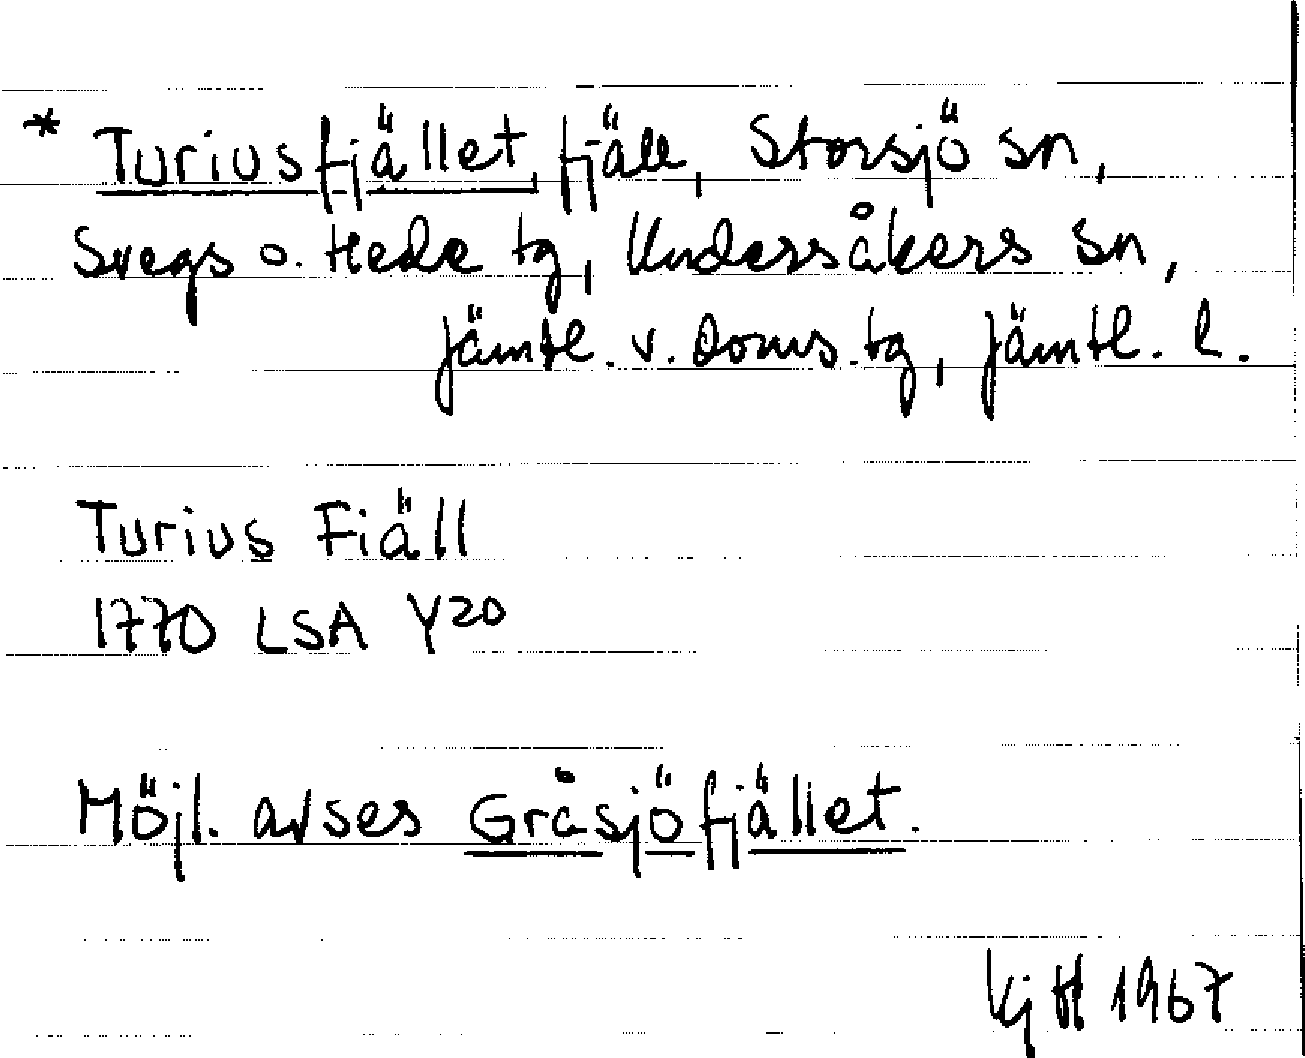 * Turiusfjället, fjäll, Storsjö sn,
Svegs o. Hede tg, Undersåkers sn,
Jämtl. v. doms. tg, Jämtl. l.
Turius Fiäll
1770 LSA Y20
Möjl. avses Gråsjöfjället.
KjH 1967